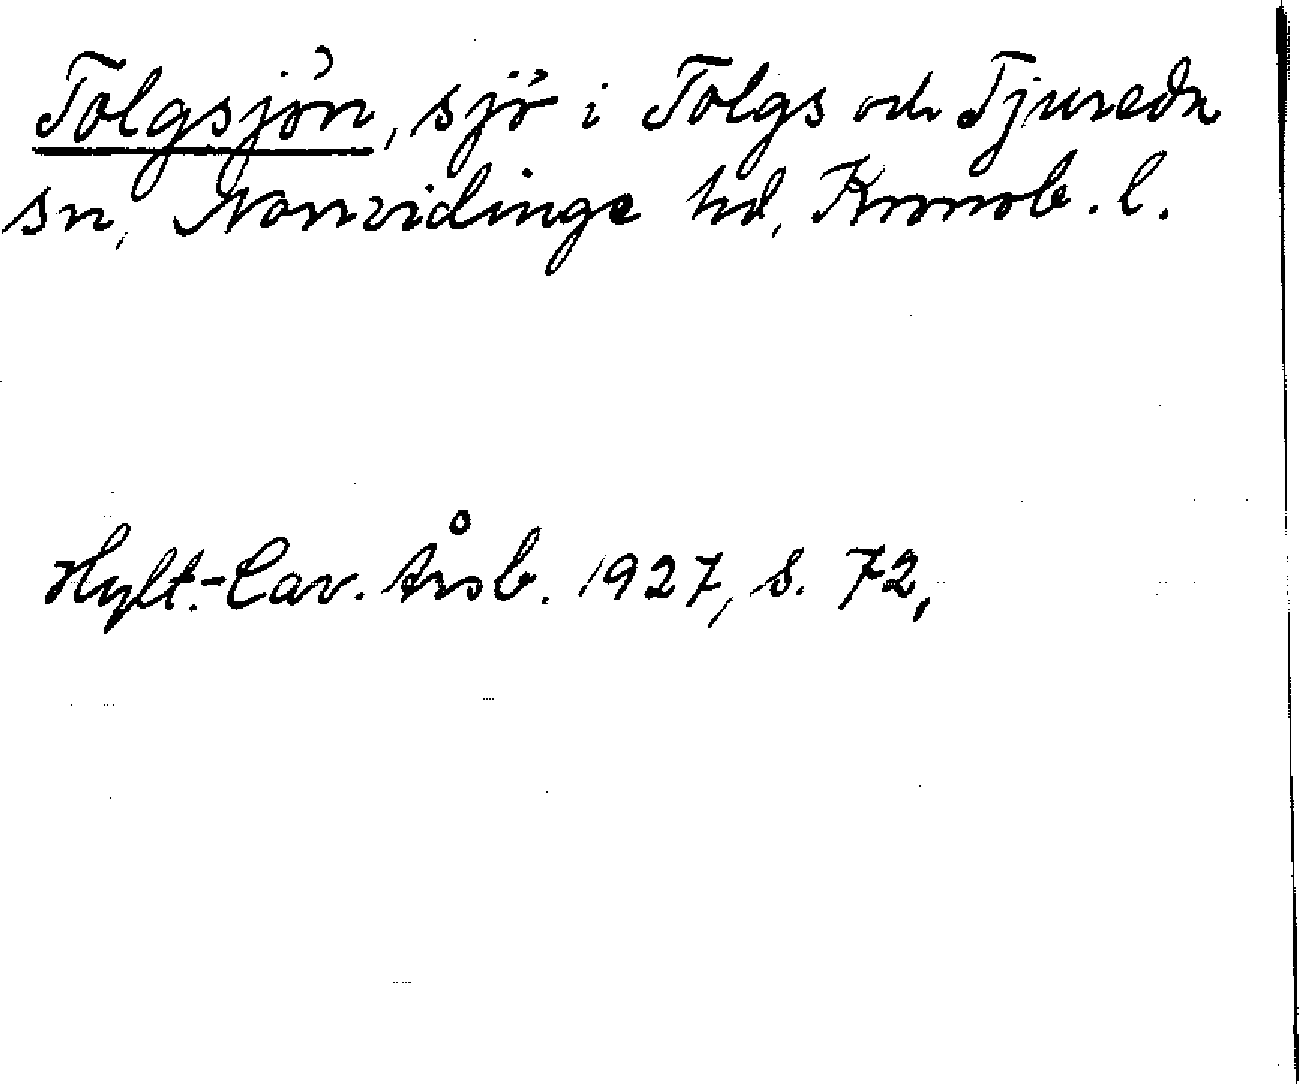 Tolgsjön, sjö i Tolgs och Tjureda
sn, Norrvidinge hd, Kronob. l.
Hylt.-Cav. Årsb. 1927, s. 72,